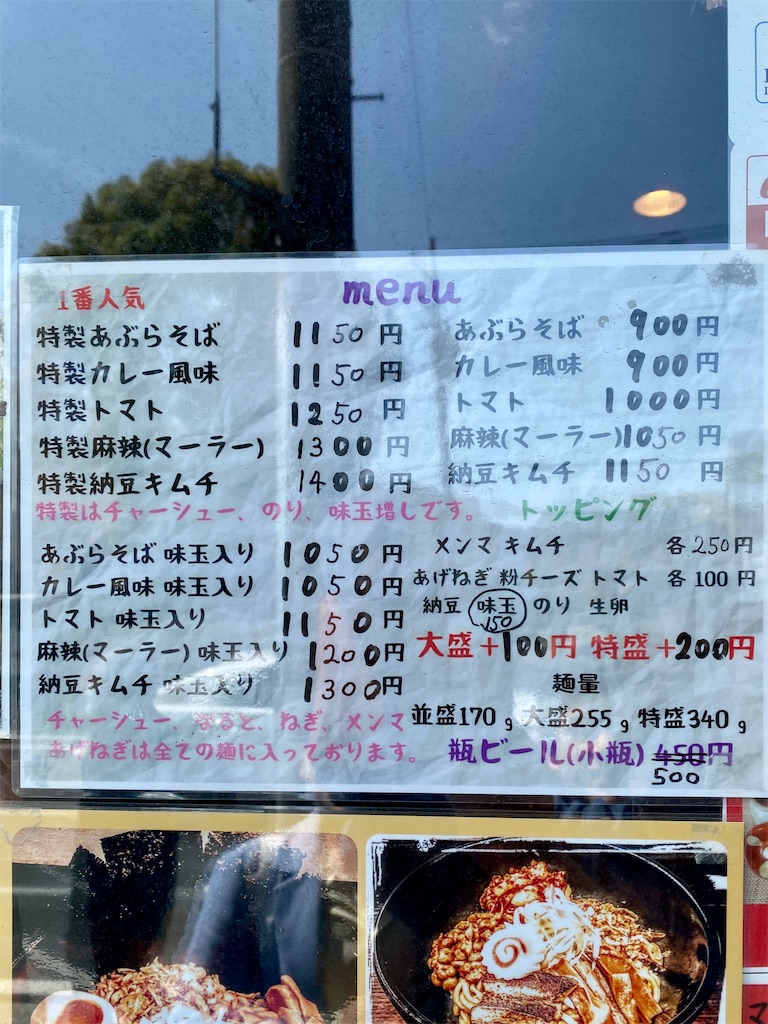 menu
1番人気
特製あぶらそば 1150円
特製カレー風味 1150円
特製トマト 1250円
特製麻辣(マーラー) 1300円
特製納豆キムチ 1400円
特製はチャーシュー、のり、味玉増しです。
あぶらそば 味玉入り 1050円
カレー風味 味玉入り 1050円
トマト 味玉入り 1150円
麻辣(マーラー) 味玉入り 1200円
納豆キムチ 味玉入り 1300円
チャーシュー、なると、ねぎ、メンマ
あげねぎは全ての麺に入っております。
あぶらそば 900円
カレー風味 900円
トマト 1000円
麻辣(マーラー) 1050円
納豆キムチ 1150円
トッピング
メンマ キムチ 各250円
あげねぎ 粉チーズ トマト 各100円
納豆 味玉 のり 生卵
150
大盛+100円 特盛+200円
麺量
並盛170g 大盛255g 特盛340g
瓶ビール(小瓶) 450円
500